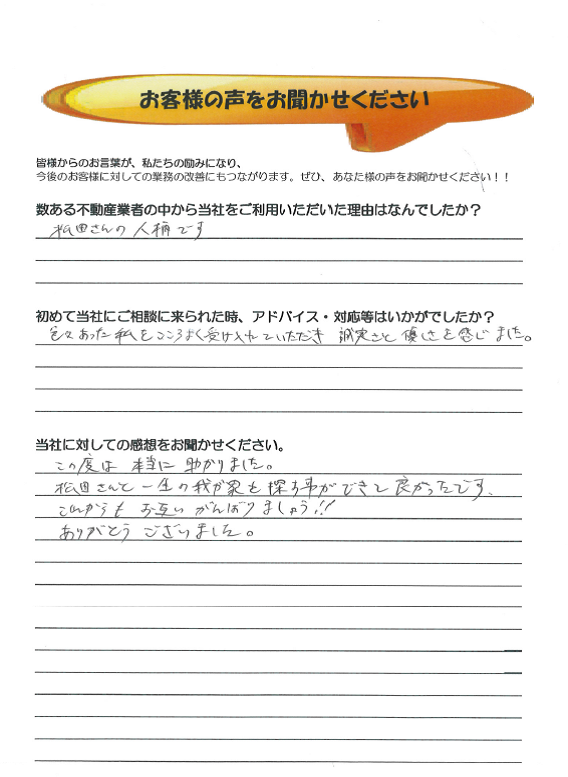 お客様の声をお聞かせください
皆様からのお言葉が、私たちの励みになり、
今後のお客様に対しての業務の改善にもつながります。ぜひ、あなた様の声をお聞かせください！！
数ある不動産業者の中から当社をご利用いただいた理由はなんでしたか？
松田さんの人柄です
初めて当社にご相談に来られた時、アドバイス・対応等はいかがでしたか？
色々あった私をこころよく受け入れていただき 誠実さと優しさを感じました。
当社に対しての感想をお聞かせください。
この度は 本当に 助かりました。
松田さんと一生の我が家を探す事ができて良かったです、
これからも お互い がんばりましょう!!
ありがとう ございました。